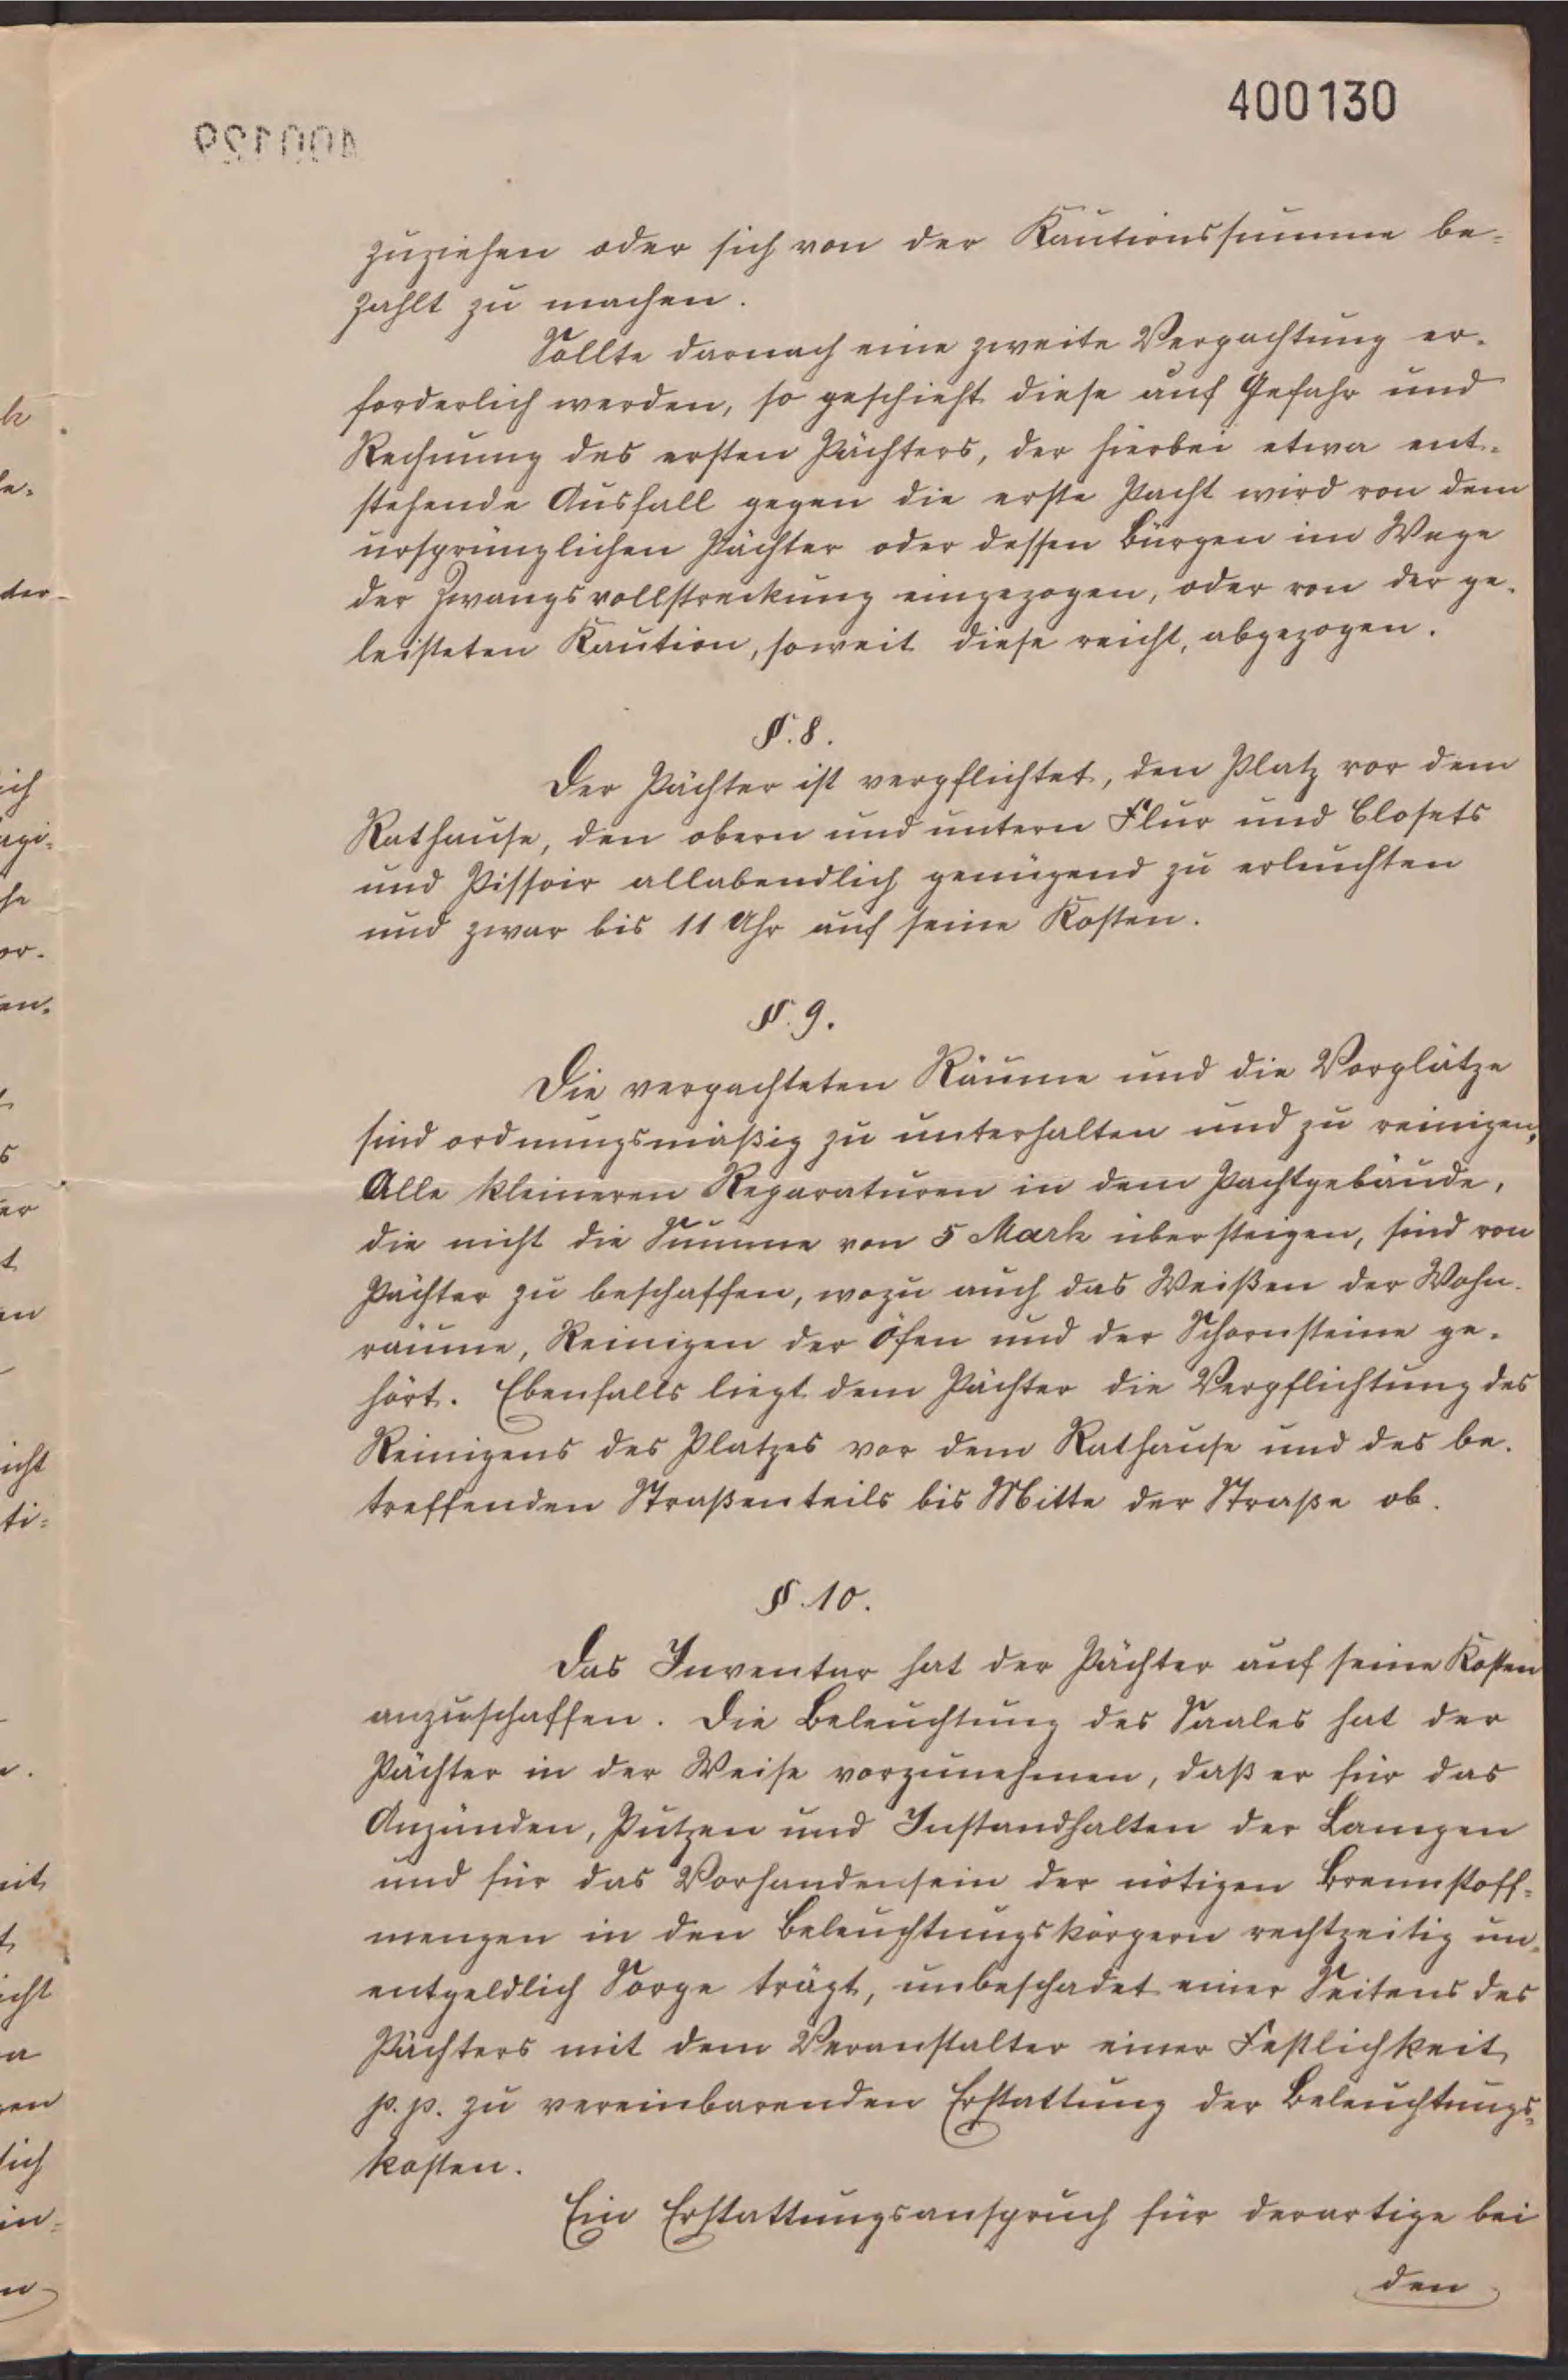 400130
400129
zuziehen oder sich von der Kautionssumme be-
zahlt zu machen.
Sollte darnach eine zweite Verpachtung er-
forderlich werden, so geschieht diese auf Gefahr und
Rechnung des ersten Pächters, der hierbei etwa ent-
stehende Ausfall gegen die erste Pacht wird von dem
ursprünglichen Pächter oder dessen Bürgen im Wege
der Zwangsvollstreckung eingezogen, oder von der ge-
leisteten Kaution, soweit diese reicht, abgezogen.
§. 8.
Der Pächter ist verpflichtet, den Platz vor dem
Rathause, den obern und untern Flur und Closets
und Pissoir allabendlich genügend zu erleuchten
und zwar bis 11 Uhr auf seine Kosten.
§. 9.
Die verpachteten Räume und die Vorplätze
sind ordnungsmäßig zu unterhalten und zu reinigen,
Alle kleineren Reparaturen in dem Pachtgebäude,
die nicht die Summe von 5 Mark übersteigen, sind von
Pächter zu beschaffen, wozu auch das Weißen der Wohn-
räume, Reinigen der Öfen und der Schornsteine ge-
hört. Ebenfalls liegt dem Pächter die Verpflichtung des
Reinigens des Platzes vor dem Rathause und des be-
treffenden Straßenteils bis Mitte der Straße ob.
§. 10.
Das Inventar hat der Pächter auf seine Kosten
anzuschaffen. Die Beleuchtung des Saales hat der
Pächter in der Weise vorzunehmen, daß er für das
Anzünden, Putzen und Instandhalten der Lampen
und für das Vorhandensein der nötigen Brennstoff-
mengen in den Beleuchtungskörpern rechtzeitig un-
entgeldlich Sorge trägt, unbeschadet einer Seitens des
Pächters mit dem Veranstalter einer Festlichkeit
p.p. zu vereinbarenden Erstattung der Beleuchtungs-
kosten.
Ein Erstattungsanspruch für derartige bei
den